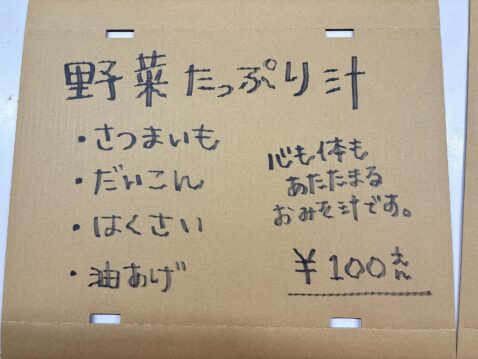 野菜たっぷり汁
・さつまいも
・だいこん
・はくさい
・油あげ
心も体も
あたたまる
おみそ汁です。
¥100えん